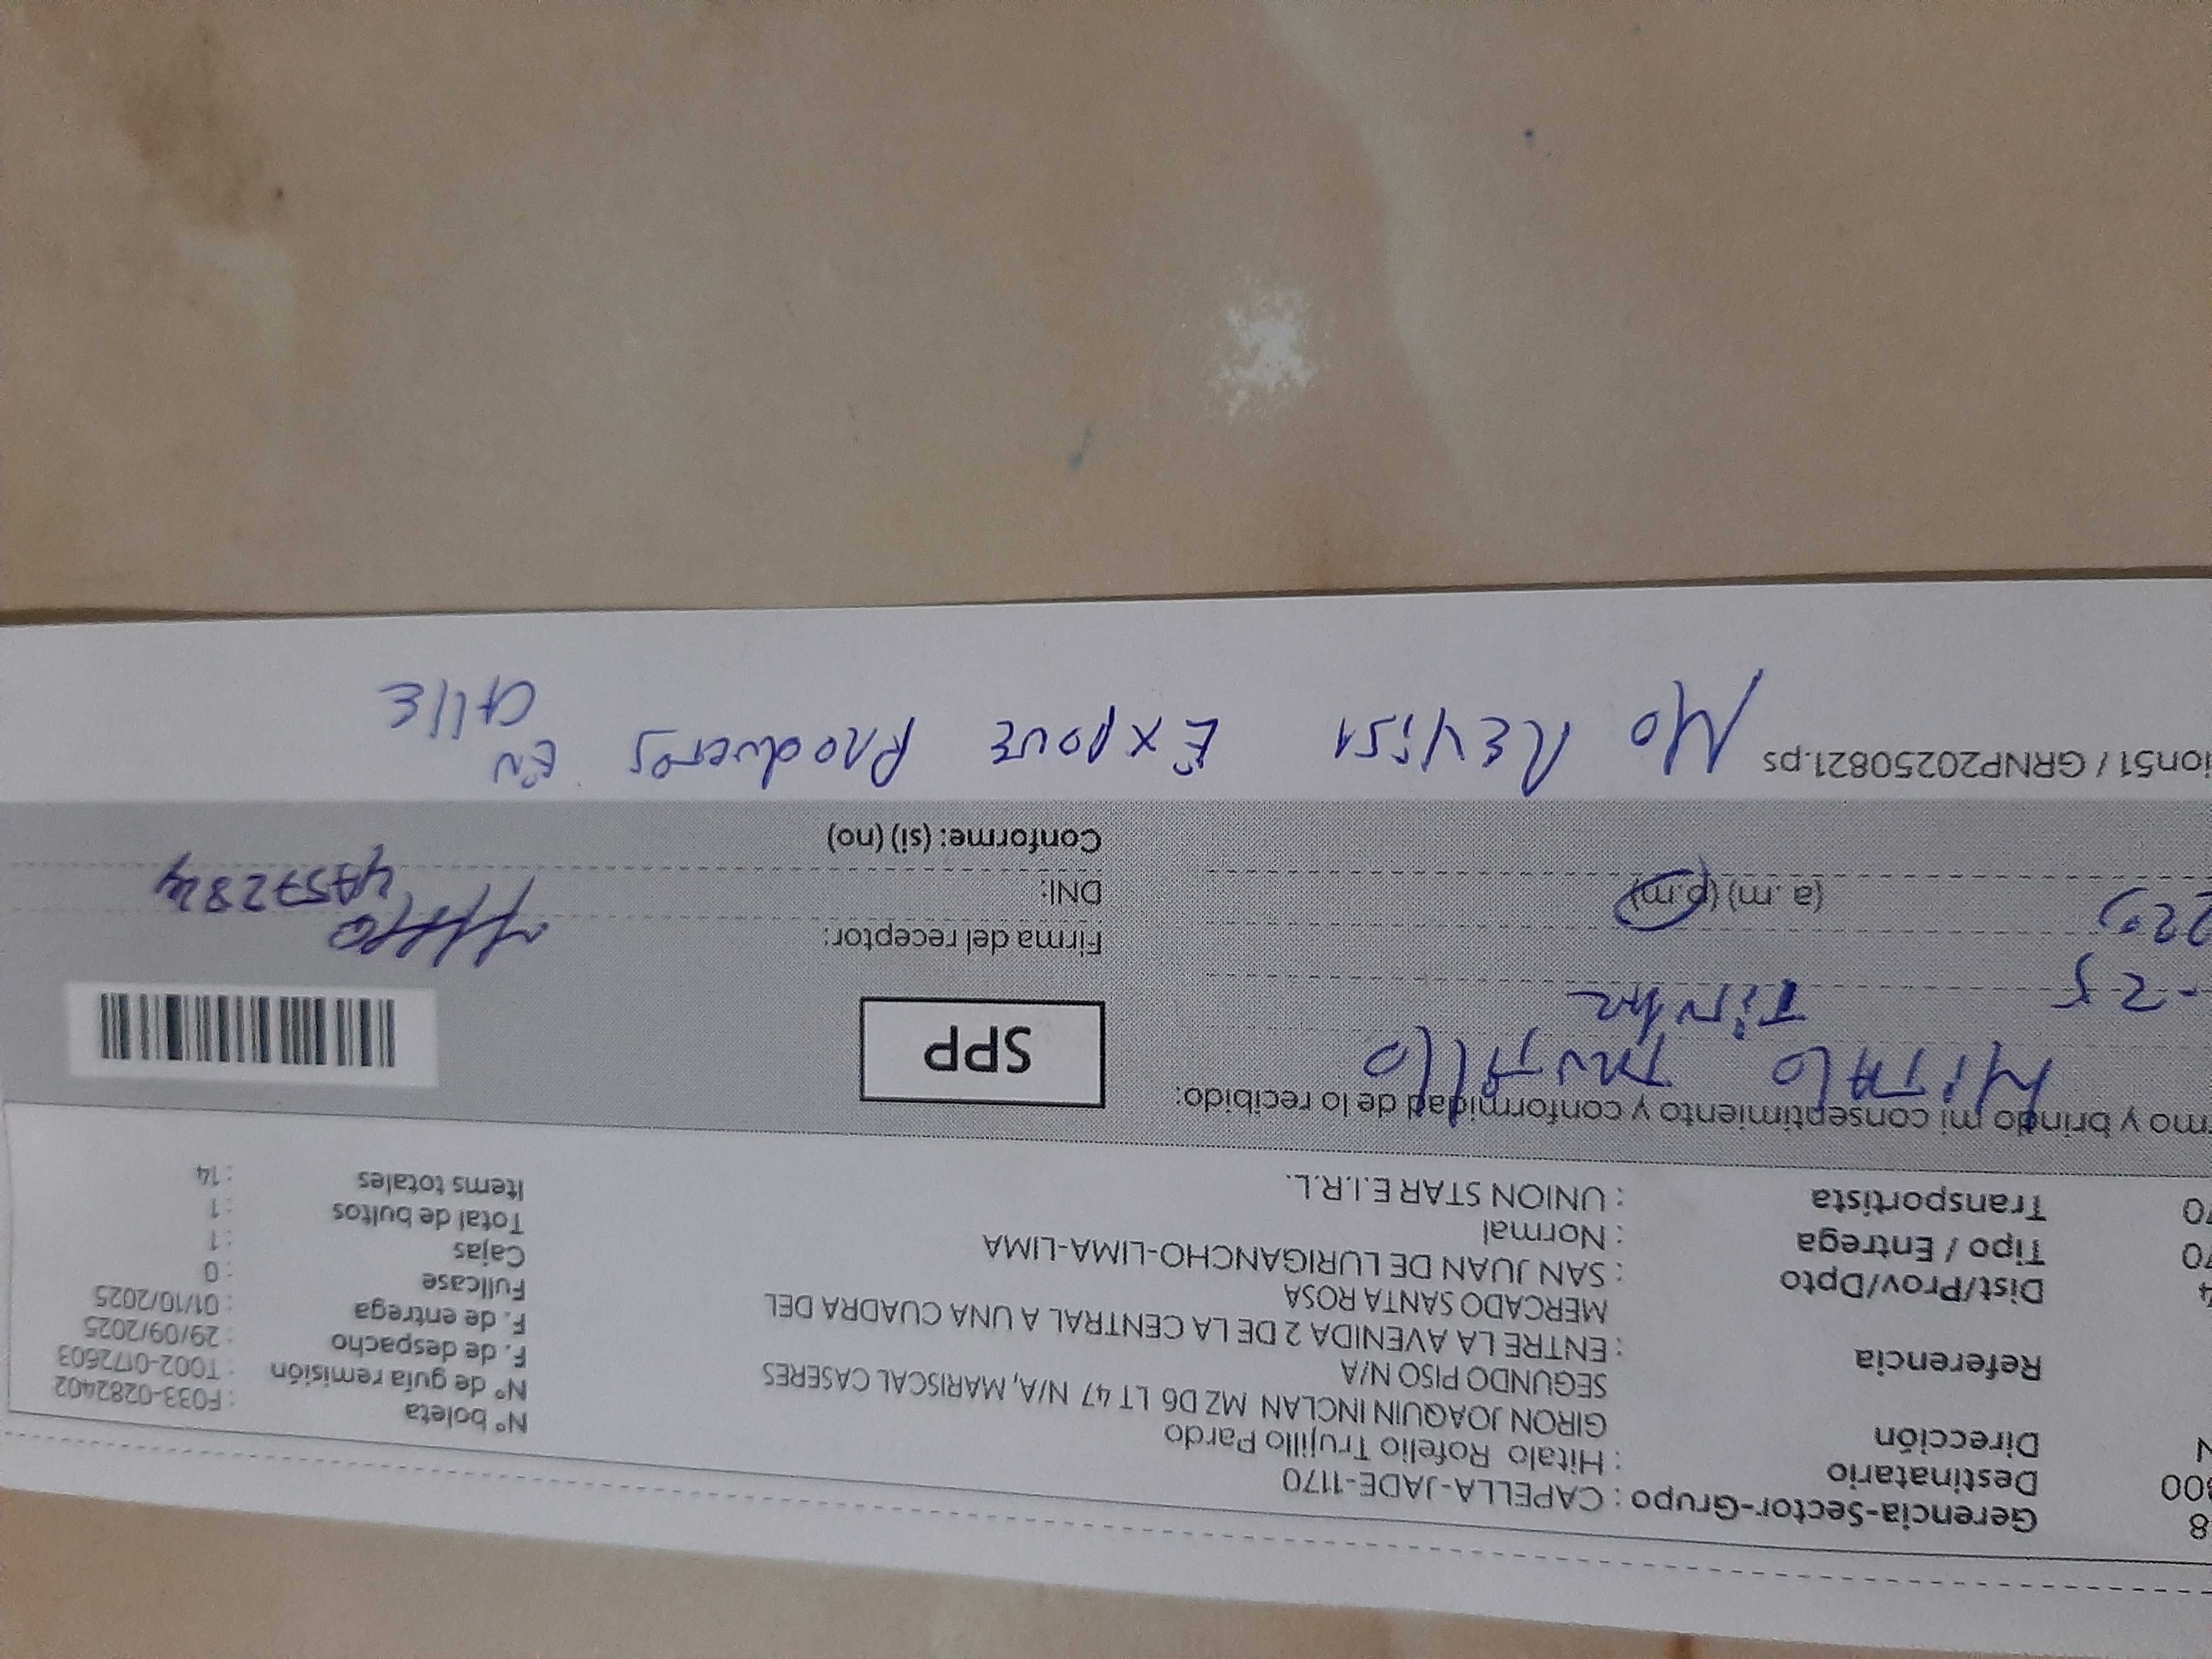 8 Gerencia-Sector-Grupo : CAPELLA-JADE-1170
00 Destinatario : Hitalo Rofelio Trujillo Pardo
N Dirección GIRON JOAQUIN INCLAN MZ D6 LT 47 N/A, MARISCAL CASERES
SEGUNDO PISO N/A
Referencia : ENTRE LA AVENIDA 2 DE LA CENTRAL A UNA CUADRA DEL
MERCADO SANTA ROSA
4 Dist/Prov/Dpto : SAN JUAN DE LURIGANCHO-LIMA-LIMA
70 Tipo / Entrega : Normal
70 Transportista : UNION STAR E.I.R.L.
N° boleta : F033-0282402
N° de guía remisión : T002-0172603
F. de despacho : 29/09/2025
F. de entrega : 01/10/2025
Fullcase : 0
Cajas : 1
Total de bultos : 1
Items totales : 14
rmo y brindo mi consentimiento y conformidad de lo recibido:
HiTALO TRUJillo
-25
(a. m) (p.m)
SPP
Firma del receptor:
DNI:
Conforme: (si) (no)
ion51 / GRNP20250821.ps
NO REViSA EXPONE PRODUCTOS EN
CALLE